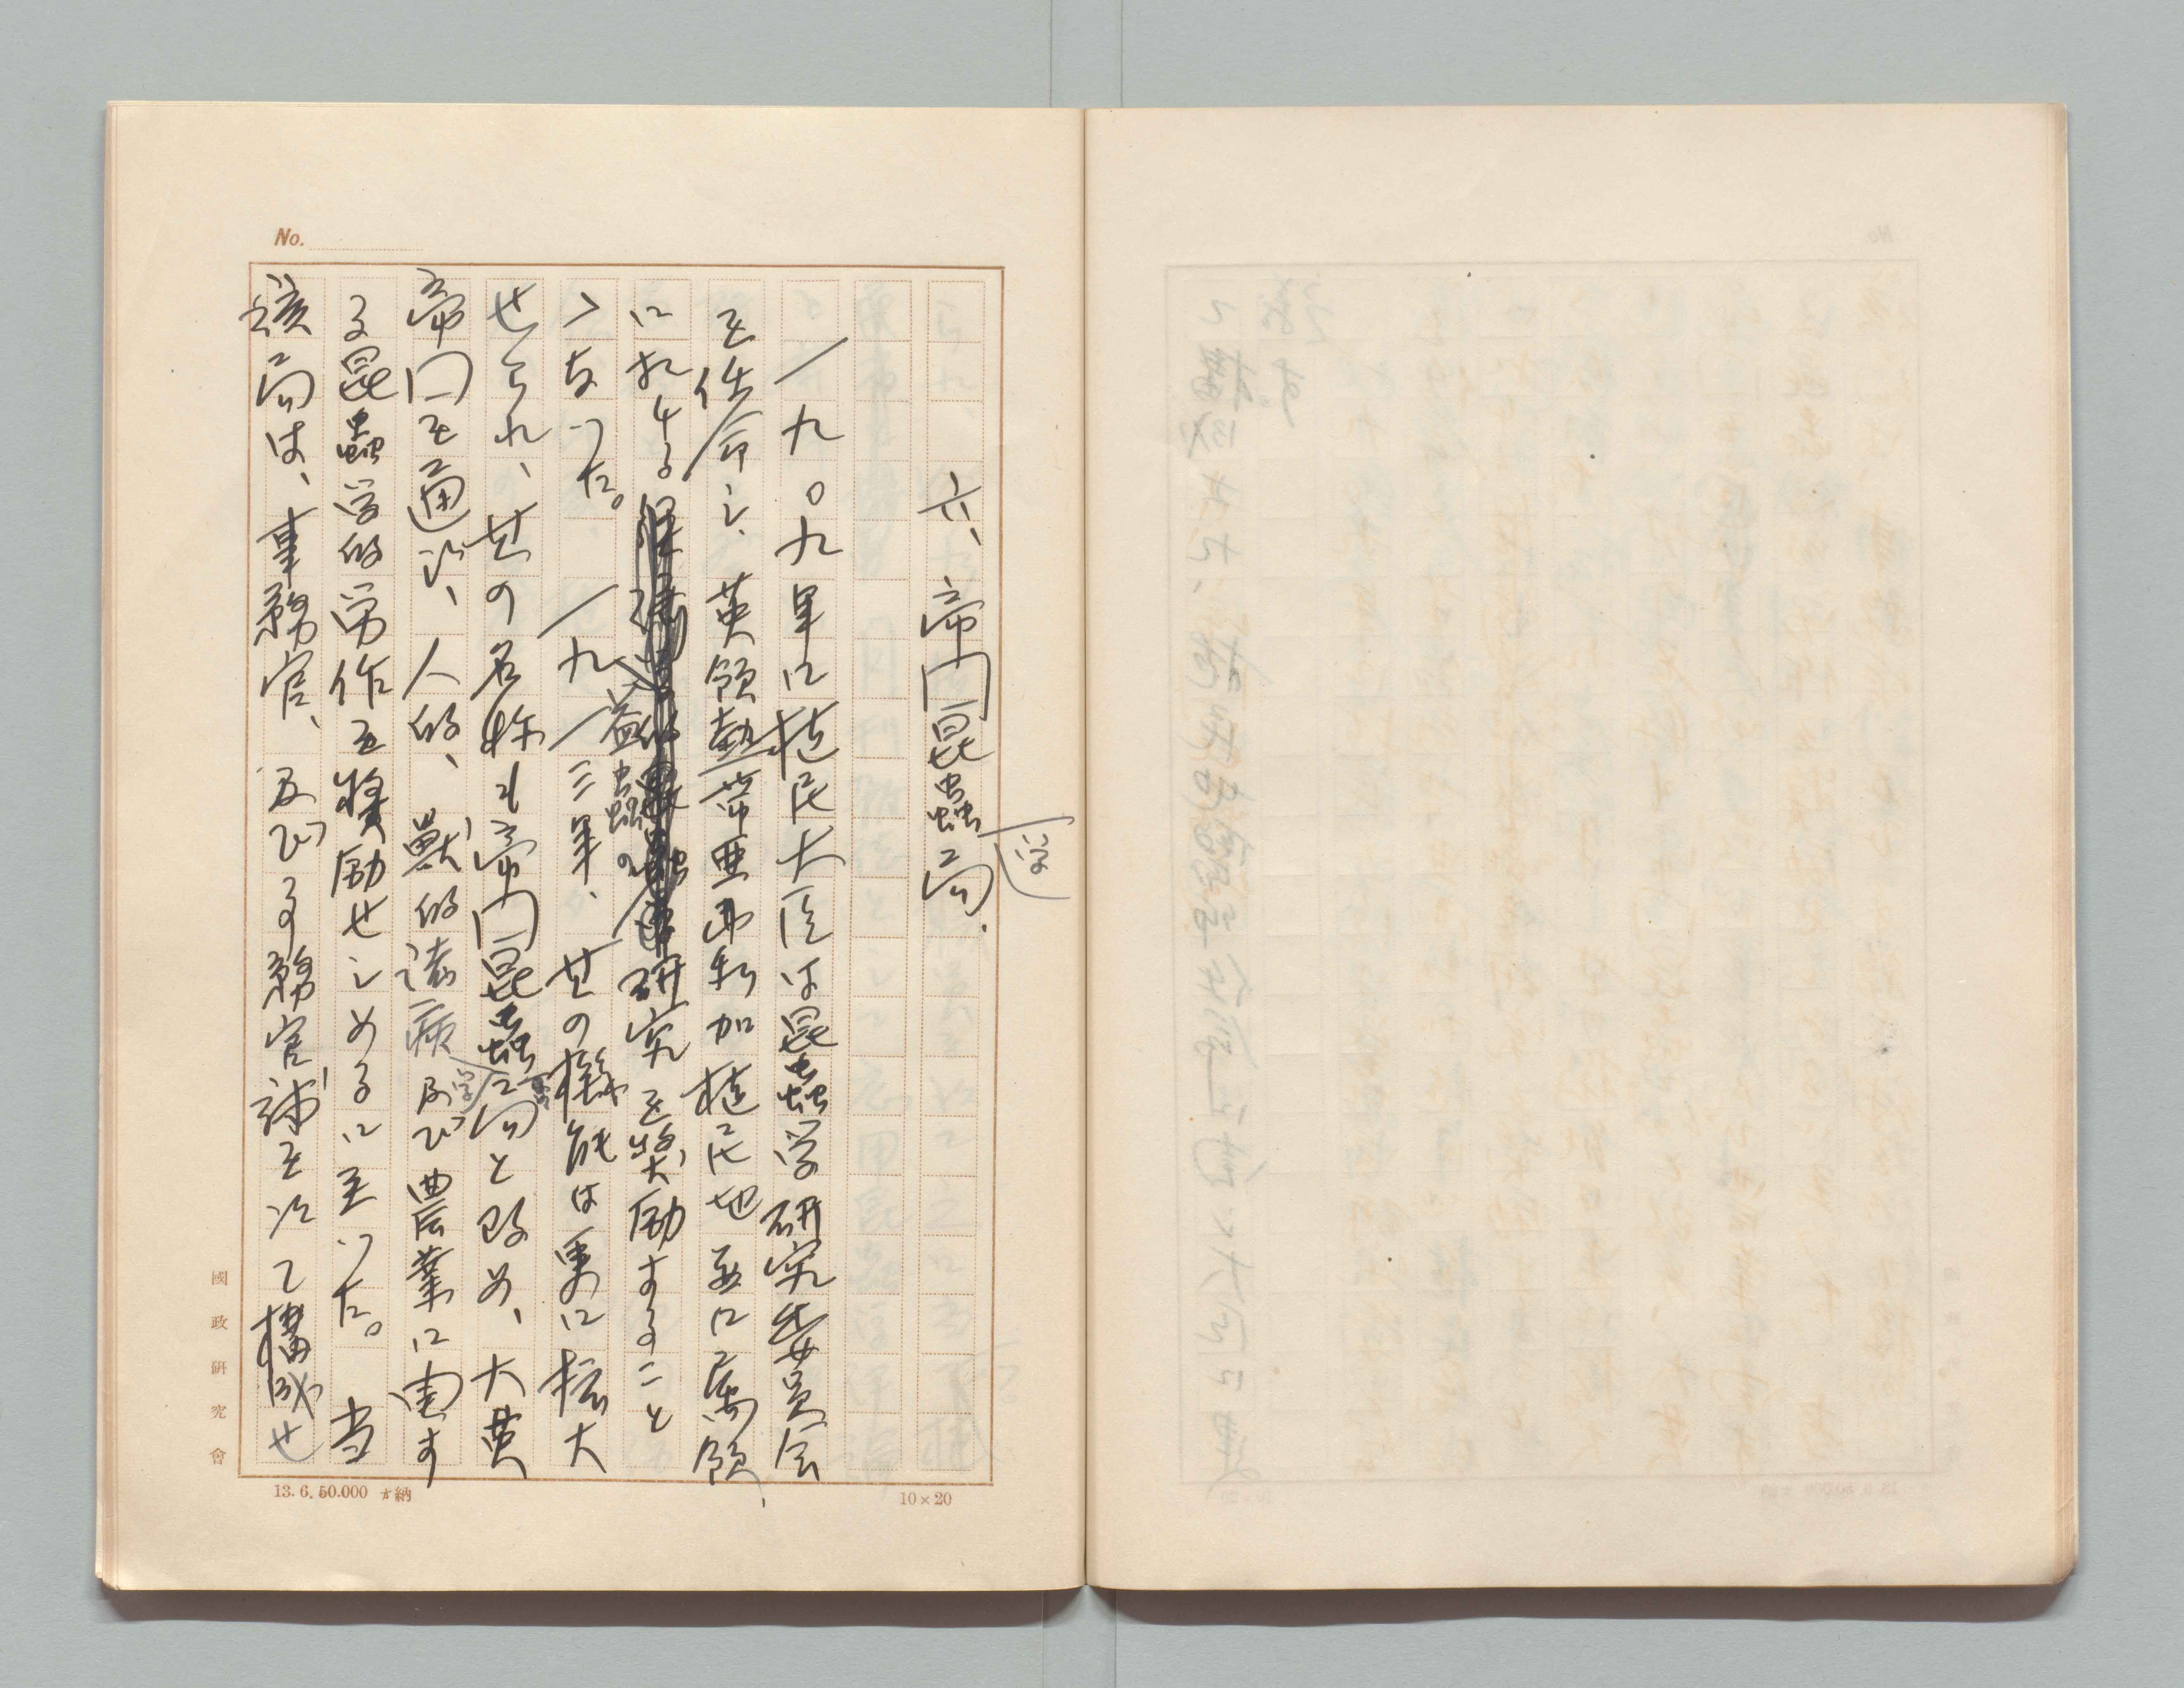 No.
六、帝国昆蟲局.
一九〇九年に植民大臣は昆蟲学研究委員会
を任命し、英領熱帯亜弗利加植民地並に属領、
に於ける益蟲の研究を奨励すること
ゝなつた。一九一三年、其の機能は更に拡大
せられ、其の名称も帝国昆蟲局と改め、大英
帝国を通じ、人的、獣的諸病及び農業に関す
る昆蟲学的労作を奨励せしめるに至つた。当
該局は、事務官、及び事務官補を以て構成せ
國政研究會
13.6.50.000 納
10×20